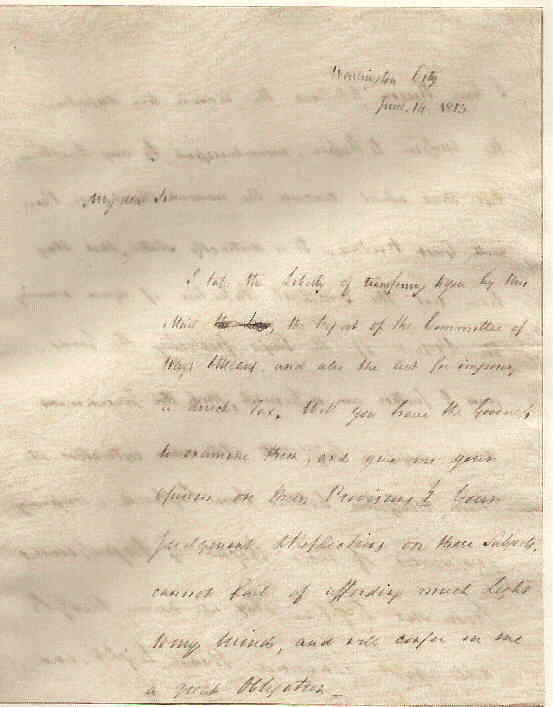 Washington City
June. 14. 1813.
My dear Sir
I take the Liberty of transferring to you by this
Mail the the Report of the Committee of
Ways & Means, and also the act for imposing
a direct Tax. Will you have the Goodness
to examine them, and give me your
opinion on their Provisions? Your
Judgment & Reflections on those Subjects,
cannot fail of affording much Light
to my Mind, and will confer on me
a great Obligation—